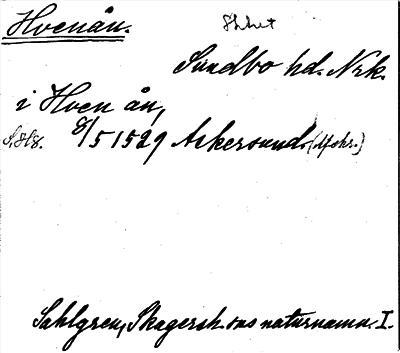 Hvenån.
Sundbo hd. Nrk.
i Hven ån,
8/5 1529 Askersund.
Sahlgren, Skagersh. sns naturnamn. I.